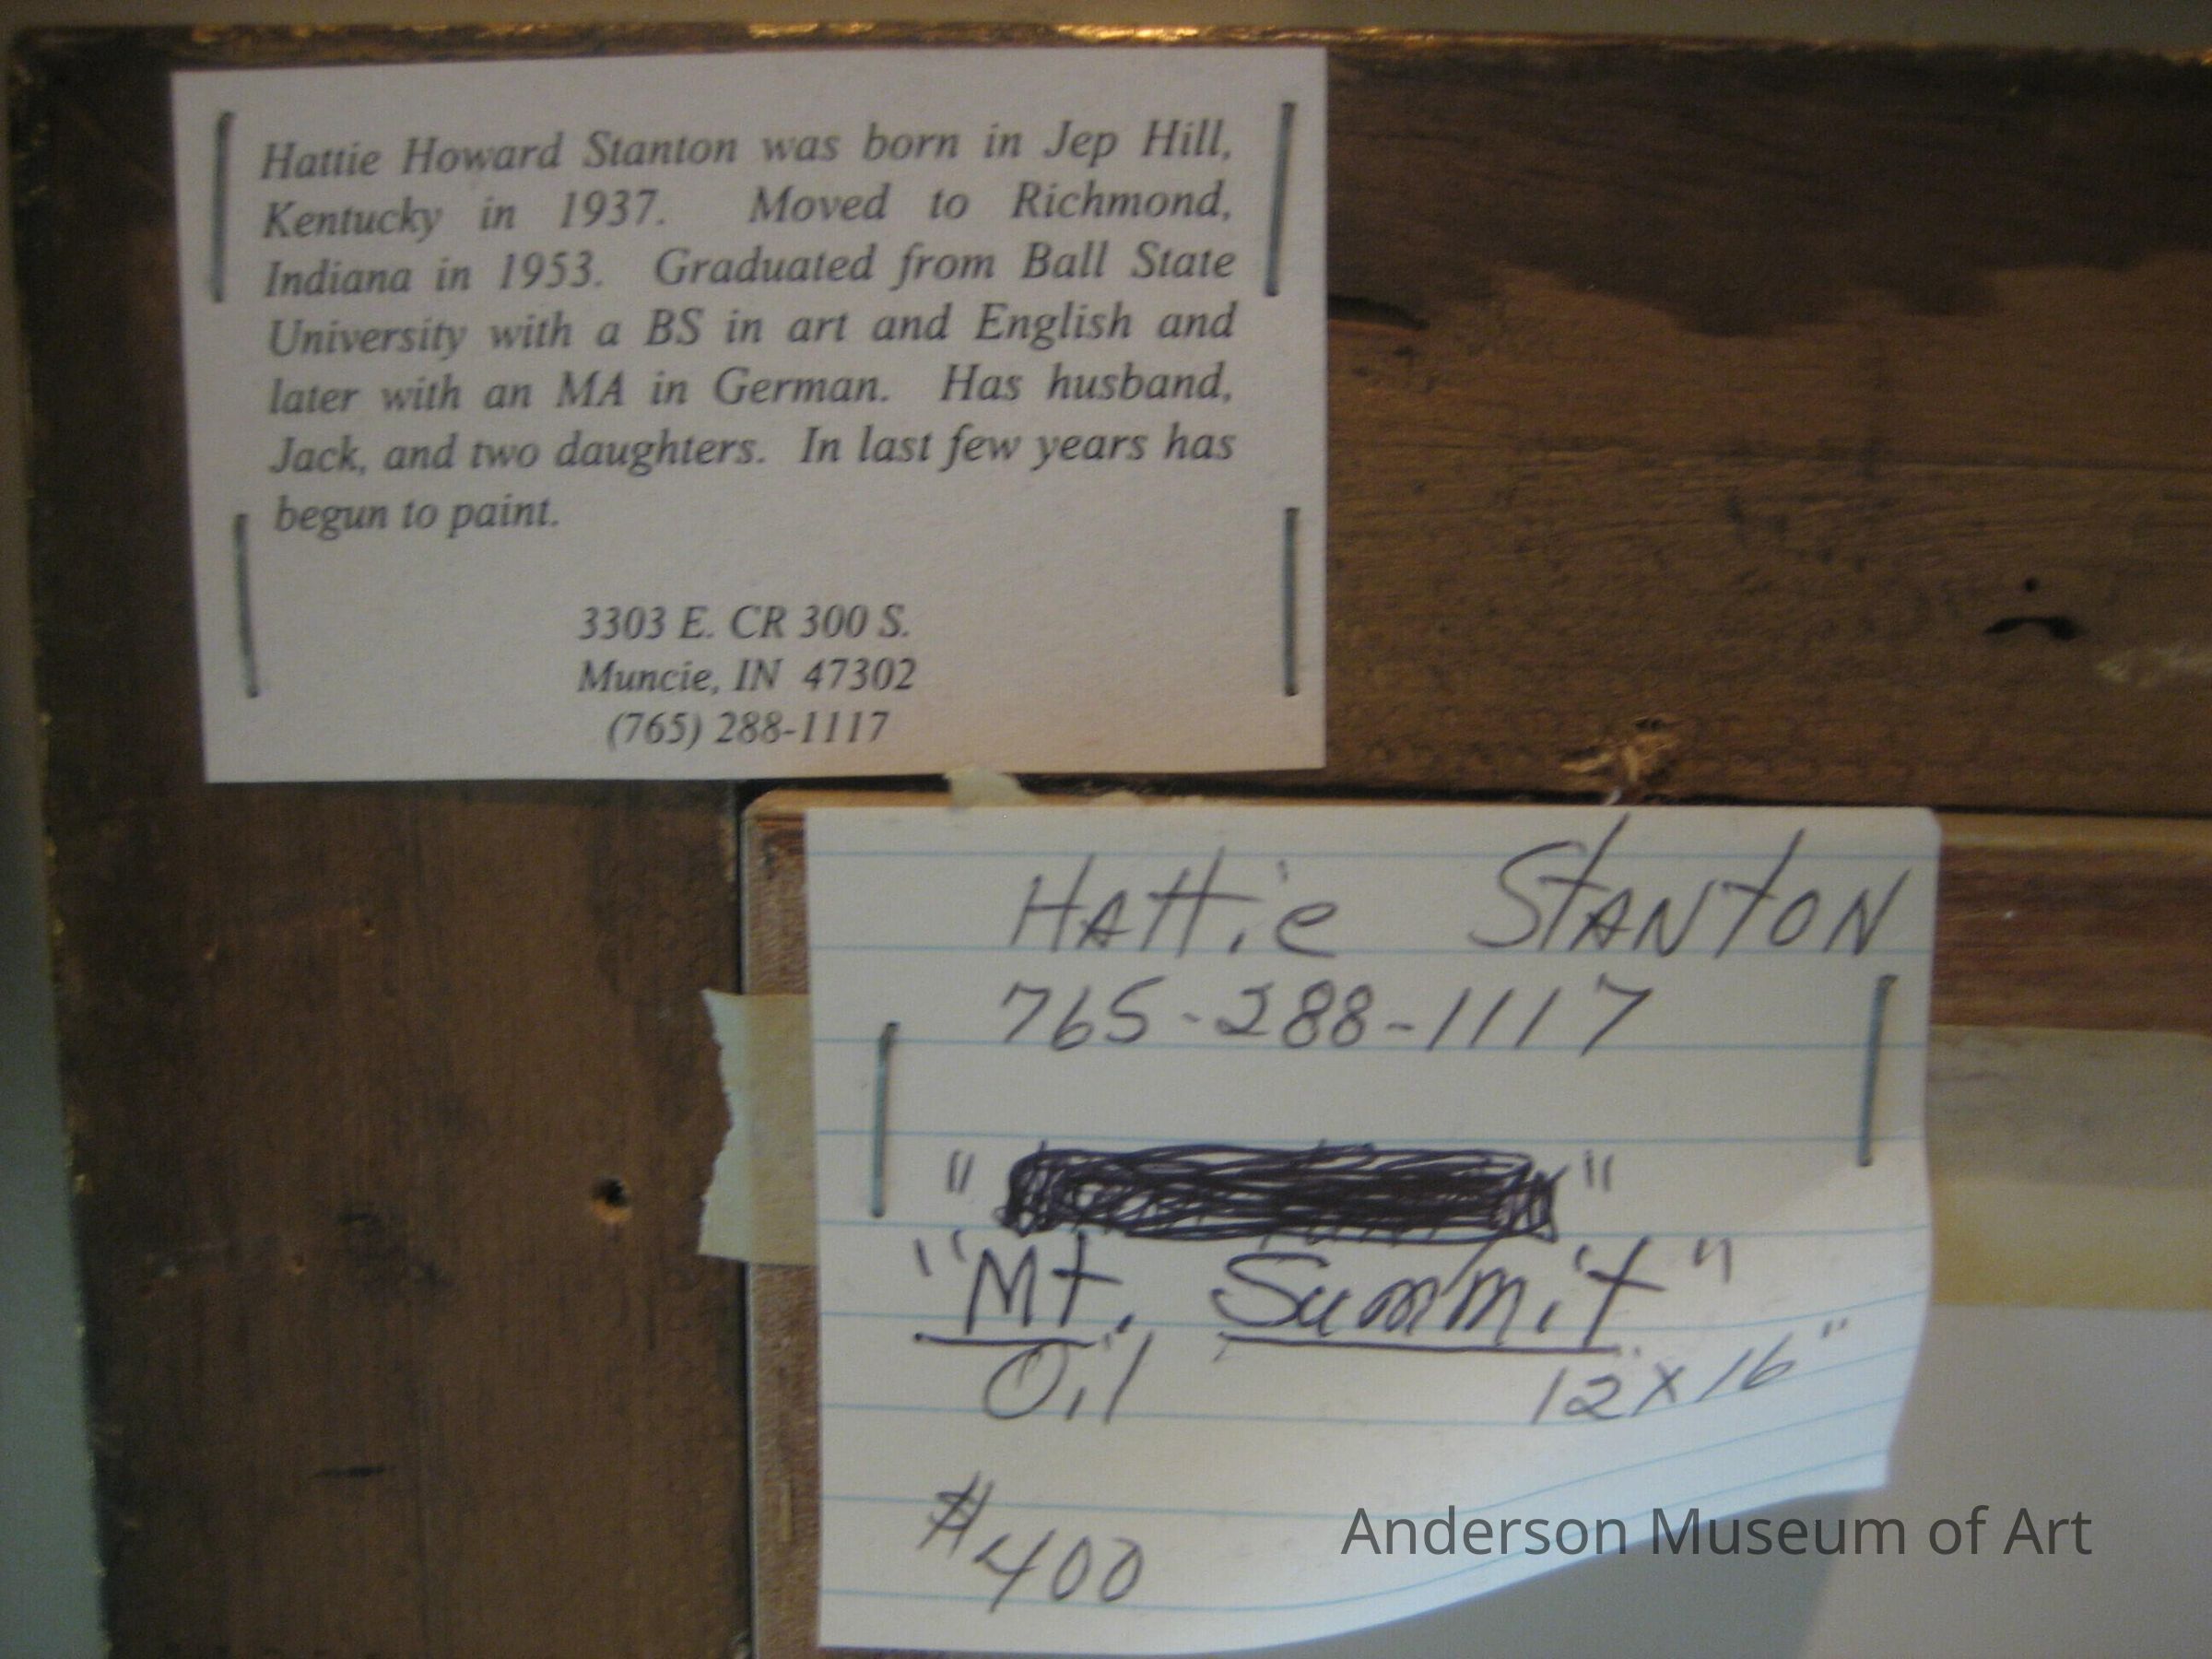 Hattie Howard Stanton was born in Jep Hill,
Kentucky in 1937. Moved to Richmond,
Indiana in 1953. Graduated from Ball State
University with a BS in art and English and
later with an MA in German. Has husband,
Jack, and two daughters. In last few years has
begun to paint.
3303 E. CR 300 S.
Muncie, IN 47302
(765) 288-1117
Hattie Stanton
765-288-1117
" "
"Mt. Summit"
Oil 12"x16"
$400
Anderson Museum of Art